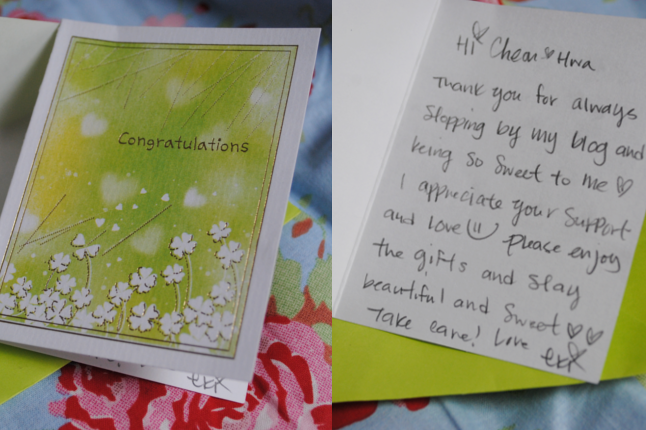 Congratulations
Hi Chean Hwa
Thank you for always
Stopping by my blog and
being so Sweet to me ♡
I appreciate your Support
and love Please enjoy
the gifts and stay
beautiful and Sweet ♡♡
Take care! Love